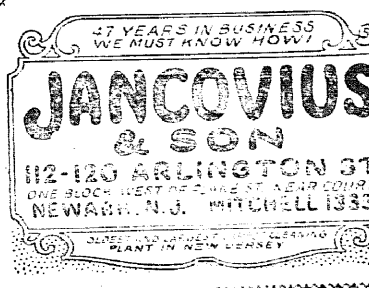 47 YEARS IN BUSINESS
WE MUST KNOW HOW!
JANCOVIUS
& SON
112-120 ARLINGTON ST
ONE BLOCK WEST OF ST. NEAR COUR
NEWARK, N.J. MITCHELL 1333
OLDEST AND CLEANING
PLANT IN NEW JERSEY